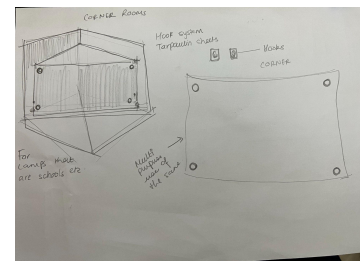 CORNER ROOMS
Hook system
Tarpaulin sheets
Hooks
CORNER
For
camps that
are schools etc
Multi
purpose
use of
the same